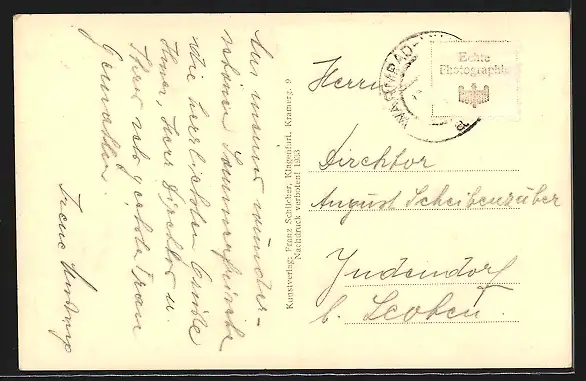 Aus meiner wunder-
schönen Sommerfrische
die herzlichsten Grüße
Ihnen, Herr Direktor u.
Ihrer sehr geehrten Frau
Gemahlin.
Irene
Kunstverlag: Franz Schilcher, Klagenfurt, Kramerg. 9
Nachdruck verboten! 1933
WARMBAD-
Echte
Photographie
Herrn
Direktor
August Scheibenzuber
Judendorf
b. Leoben